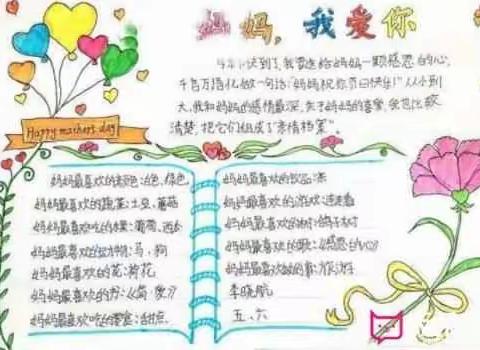 妈妈,我爱你
今年三八快到了,我要送给妈妈一颗感恩的心,
千言万语化做一句话:"妈妈祝你节日快乐!"从小到
大,我和妈妈的感情最深,关于妈妈的喜爱,我也比较
清楚,把它们组成了"亲情档案"。
Happy mothers day
妈妈最喜欢的颜色:白色、绿色
妈妈最喜欢的蔬菜:土豆、蘑菇
妈妈最喜欢吃的水果:葡萄、西瓜
妈妈最喜欢的动物:马、狗
妈妈最喜欢的花:荷花
妈妈最喜欢的书:《简·爱》
妈妈最喜欢吃的零食:甜点
妈妈最喜欢的饮品:茶
妈妈最喜欢的游戏:连连看
妈妈最喜欢的树:鸽子树
妈妈最喜欢的歌:《感恩的心》
妈妈最喜欢做的事:旅游
李晓航
五、六